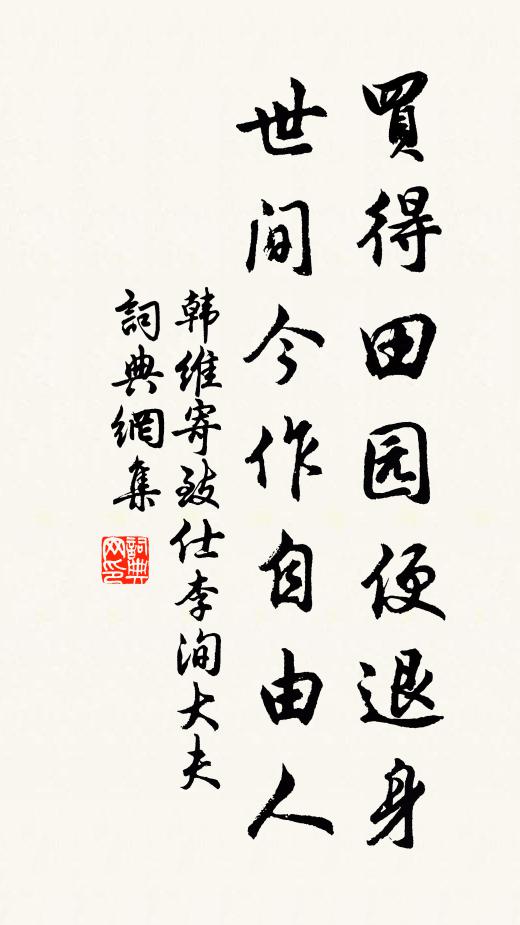 買得田园便退身
世间今作自由人
韩維寄致仕李洵大夫
詞典網集
詞典
网印